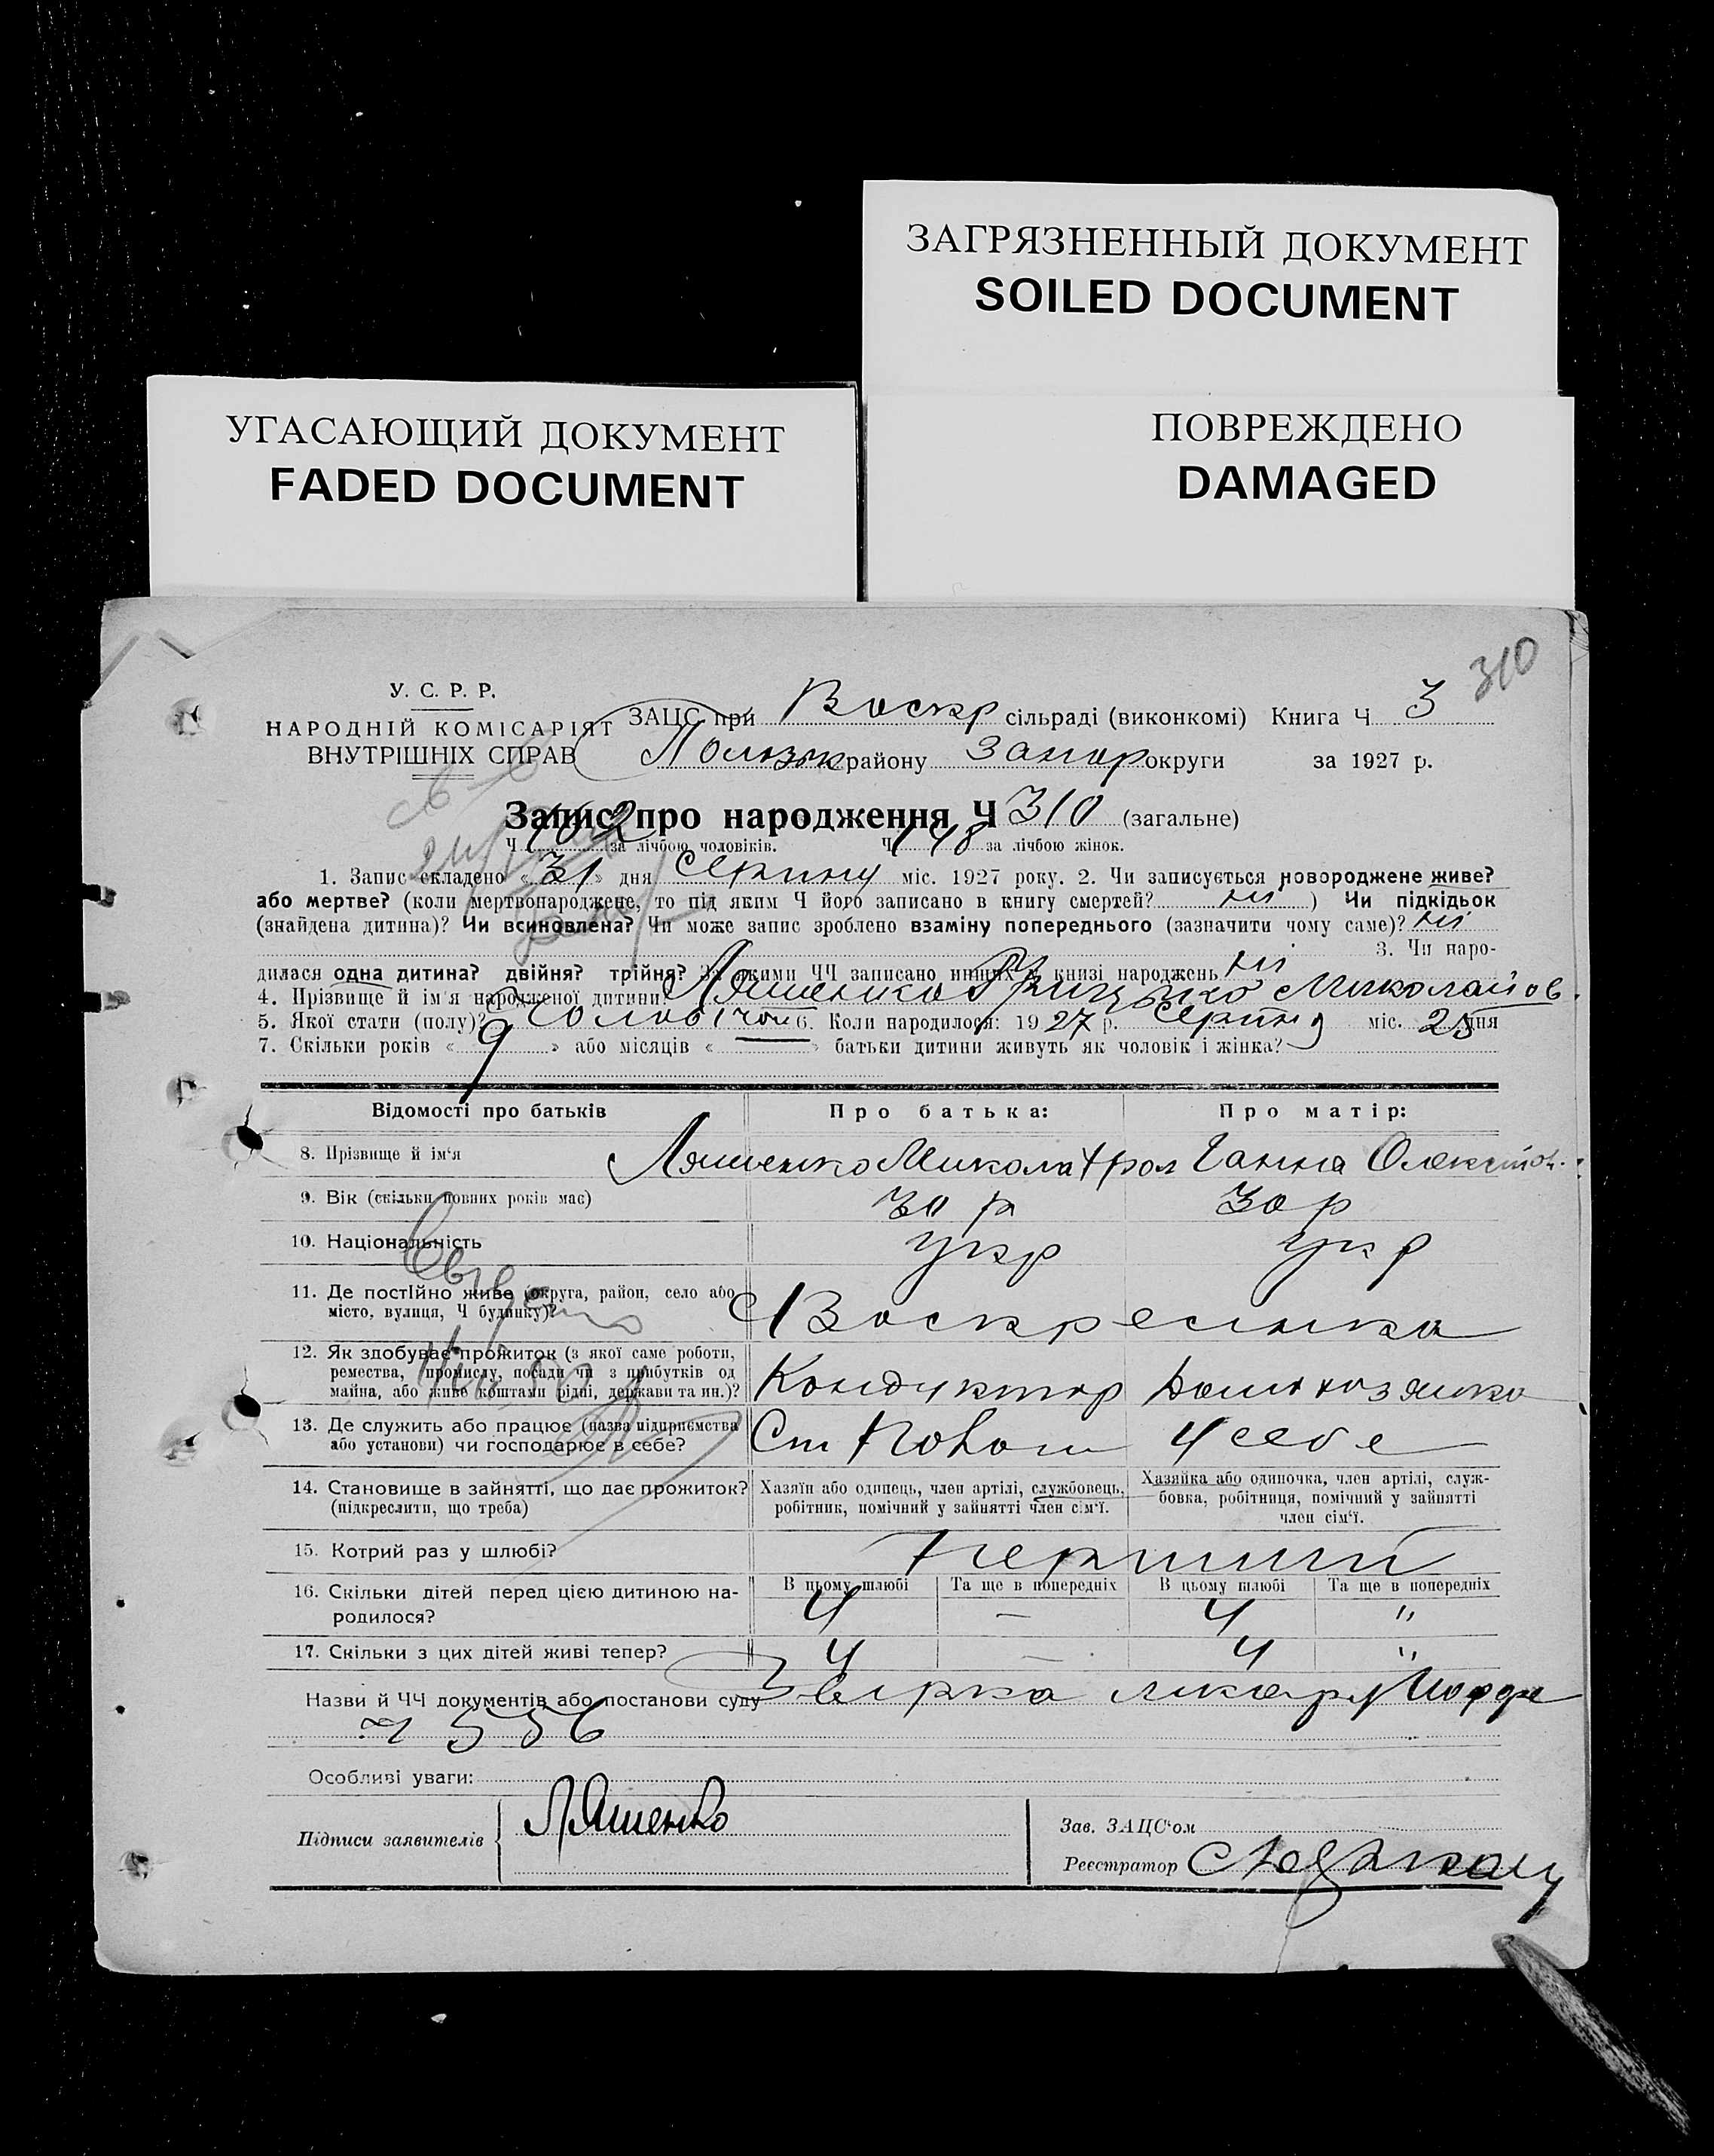 ЗАГРЯЗНЕННЫЙ ДОКУМЕНТ
SOILED DOCUMENT
УГАСАЮЩИЙ ДОКУМЕНТ
FADED DOCUMENT
ПОВРЕЖДЕНО
DAMAGED
310
У. С. Р. Р.
НАРОДНІЙ КОМІСАРІЯТ
ВНУТРІШНІХ СПРАВ
ЗАЦС при Воскр сільраді (виконкомі) Книга Ч 3
району Запор округи за 1927 р.
Запис про народження Ч 310 (загальне)
Ч 162 за лічбою чоловіків. Ч 148 за лічбою жінок.
1. Запис складено « 31 » дня Серпну міс. 1927 року. 2. Чи записується новороджене живе?
або мертве? (коли мертвонароджене, то під яким Ч його записано в книгу смертей? ні ) Чи підкідьок
(знайдена дитина)? Чи всиновлена? Чи може запис зроблено взаміну попереднього (зазначити чому саме)? ні
3. Чи наро-
дилася одна дитина? двійня? трійня? За якими ЧЧ записано инших у книзі народжень ні
4. Прізвище й ім'я народженої дитини? Ляшенко Грицько Миколайов.
5. Якої стати (полу)? Чоловічої 6. Коли народилося: 1927 р. Серпня міс. 25 дня
7. Скільки років « 9 » або місяців « — » батьки дитини живуть як чоловік і жінка?
Відомості про батьків Про батька: Про матір:
8. Прізвище й ім'я Ляшенко Микола Ганна
9. Вік (скільки повних років має) 30 р 30 р
10. Національність укр укр
11. Де постійно живе (округа, район, село або
місто, вулиця, Ч будинку)? Воскресенка
12. Як здобуває прожиток (з якої саме роботи,
ремества, промислу, посади чи з прибутків од
майна, або живе коштами рідні, держави та ин.)? Кондуктор Домохозяйка
13. Де служить або працює (назва підприємства
або установи) чи господарює в себе? Ст У себе
14. Становище в зайнятті, що дає прожиток?
(підкреслити, що треба)
Хазяїн або одинець, член артілі, службовець,
робітник, помічний у зайнятті член сім'ї.
Хазяйка або одиночка, член артілі, служ-
бовка, робітниця, помічний у зайнятті
член сім'ї.
15. Котрий раз у шлюбі? Перший
16. Скільки дітей перед цією дитиною на-
родилося?
В цьому шлюбі Та ще в попередніх В цьому шлюбі Та ще в попередніх
4 — 4 "
17. Скільки з цих дітей живі тепер? 4 — 4 "
Назви й ЧЧ документів або постанови суду лікаря
Ч 556
Особливі уваги:
Підписи заявителів Ляшенко
Зав. ЗАЦС'ом
Реєстратор